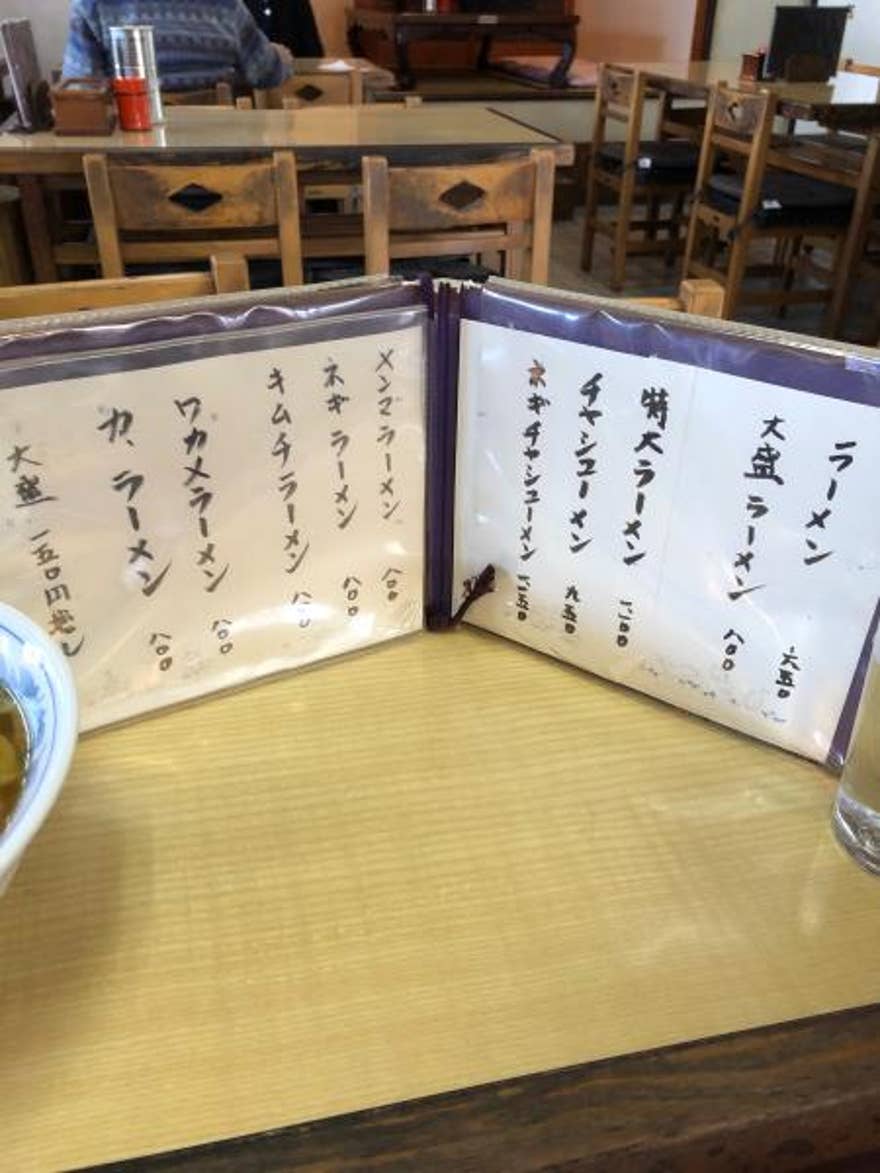 ラーメン 六五〇
大盛ラーメン 八〇〇
特大ラーメン 一、一〇〇
チャシューメン 九五〇
ネギチャシューメン 一、一五〇
メンマラーメン 八〇〇
ネギラーメン 八〇〇
キムチラーメン 八〇〇
ワカメラーメン 八〇〇
力、ラーメン 八〇〇
大盛 一五〇円増し